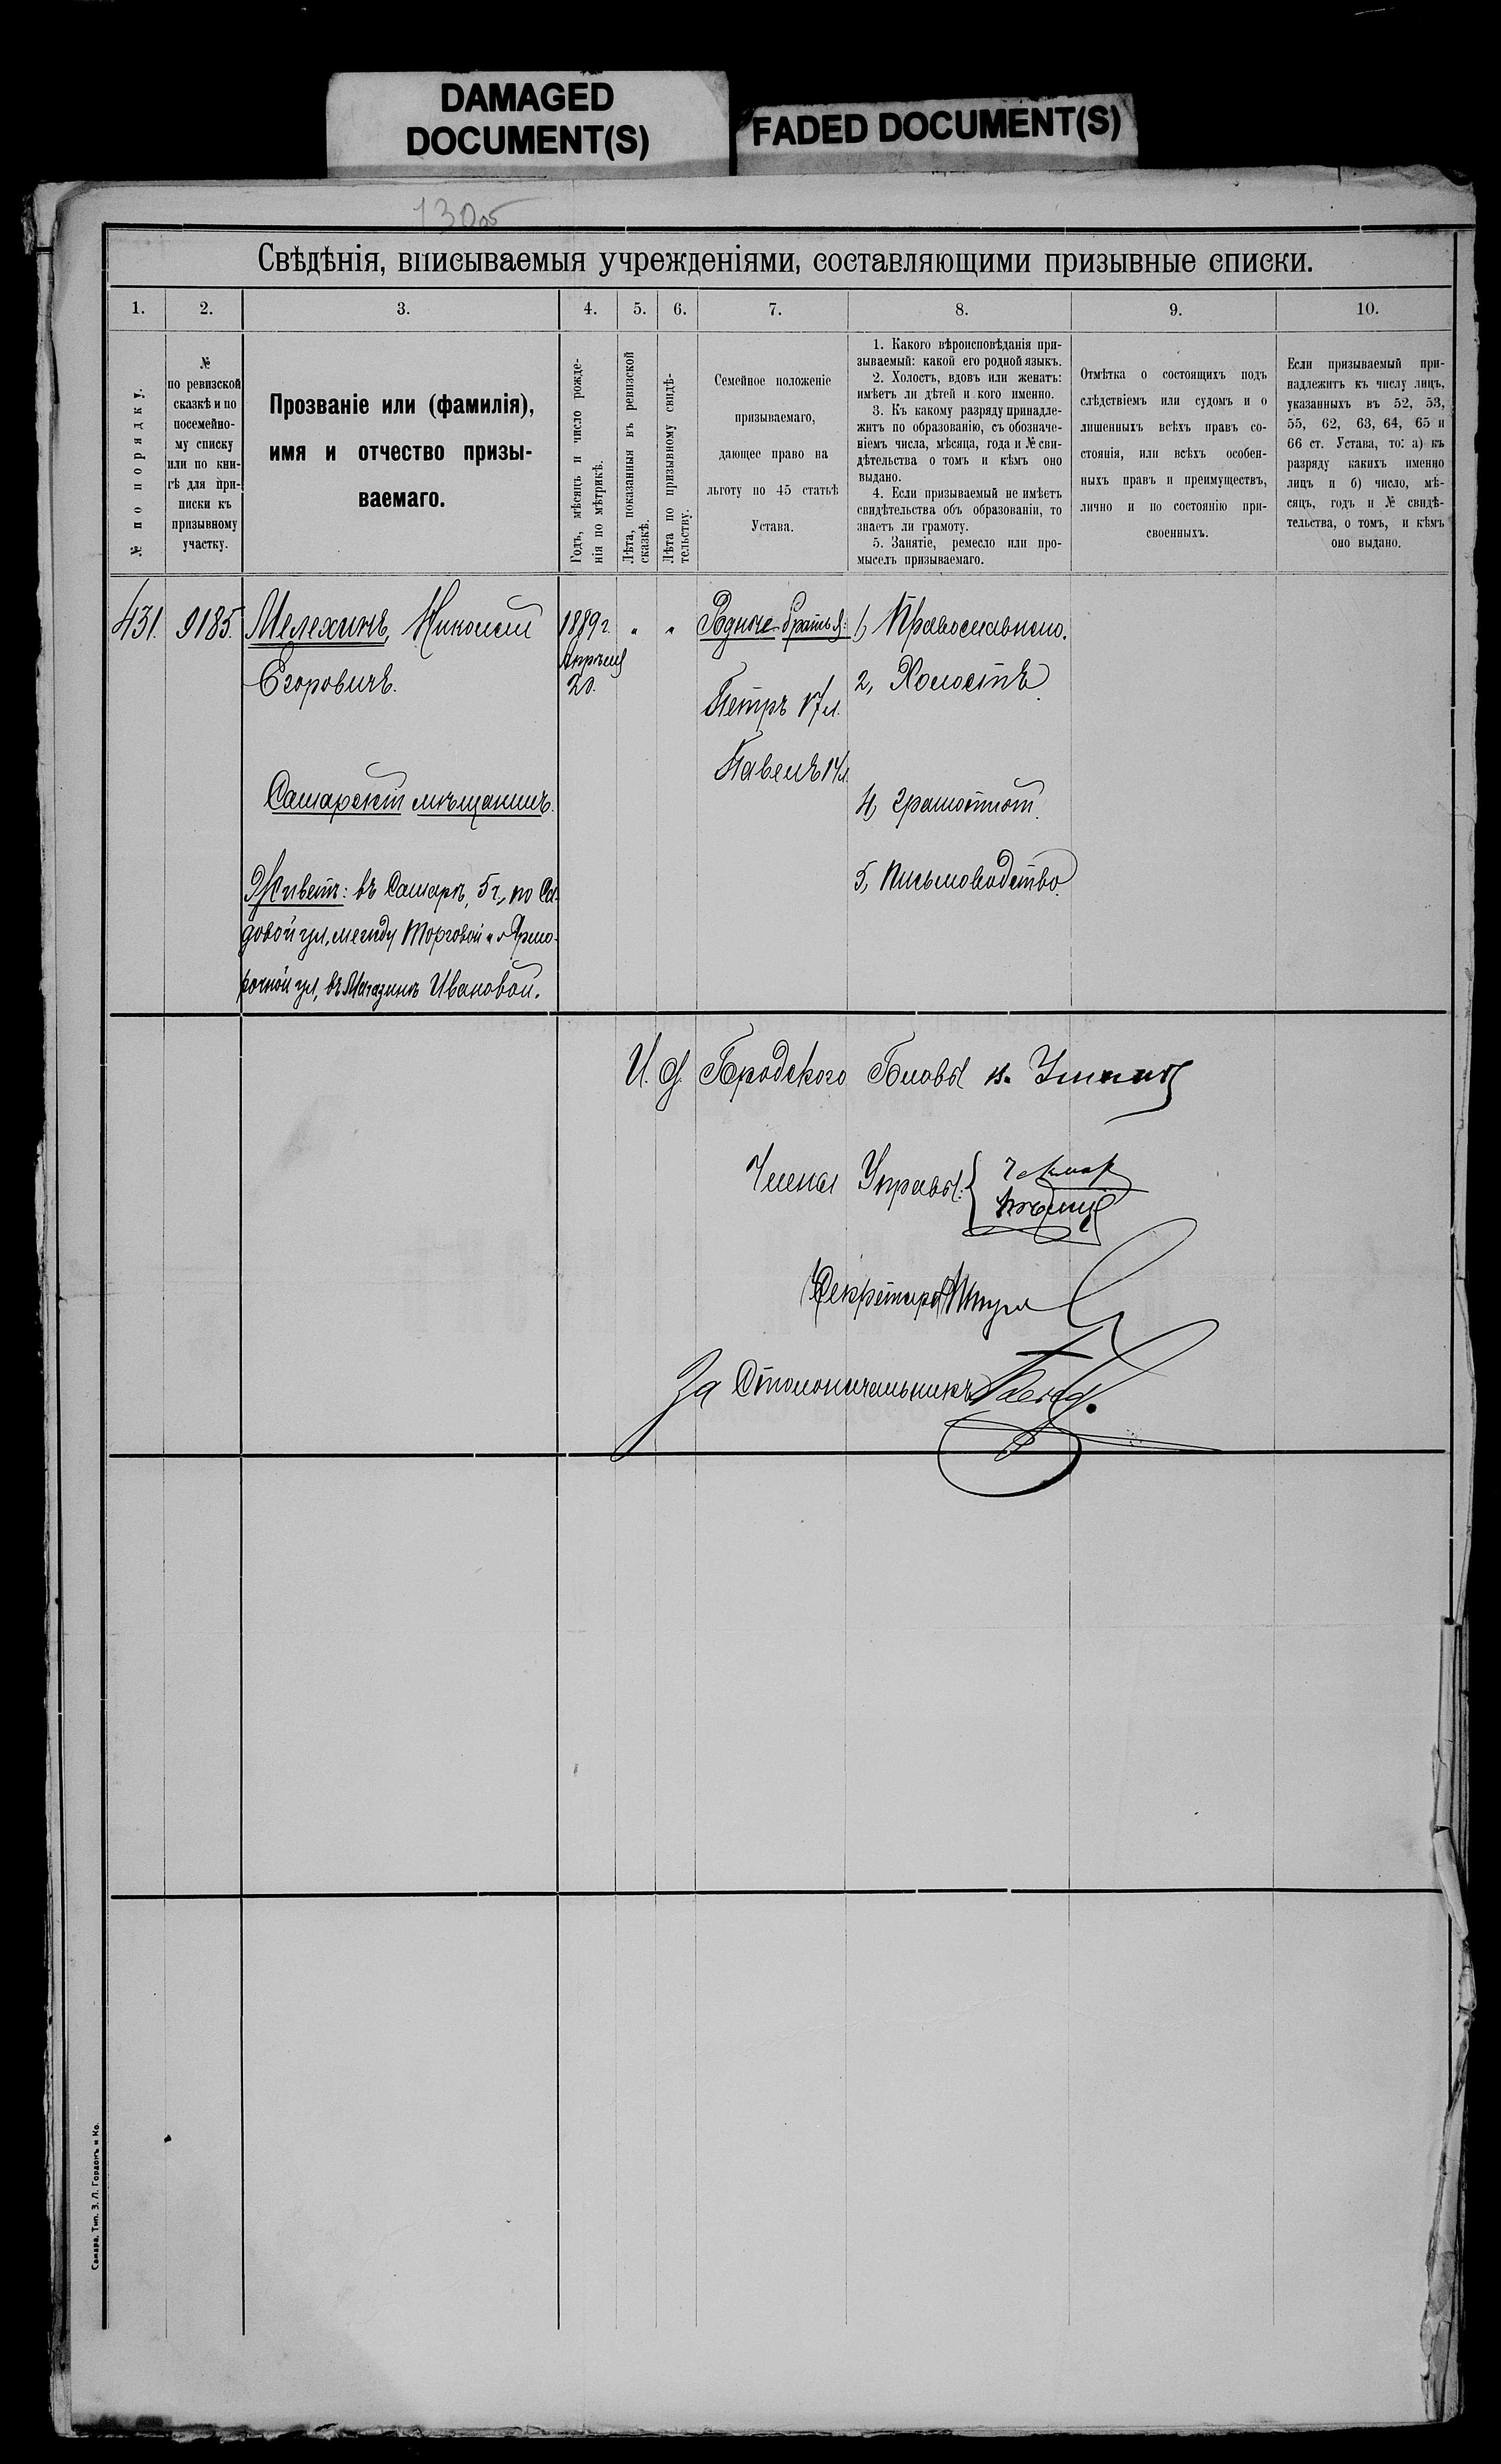 DAMAGED
DOCUMENT(S)
FADED DOCUMENT(S)
130об
Свѣдѣнія, вписываемыя учрежденіями, составляющими призывные списки.
1.
2.
3.
4.
5.
6.
7.
8.
9.
10.
№ по порядку.
№
по ревизской
сказкѣ и по
посемейно-
му списку
или по кни-
гѣ для при-
писки къ
призывному
участку.
Прозваніе или (фамилія),
имя и отчество призы-
ваемаго.
Годъ, мѣсяцъ и число рожде-
нія по мѣтрикѣ.
Лѣта, показанныя въ ревизской
сказкѣ.
Лѣта по призывному свидѣ-
тельству.
Семейное положеніе
призываемаго,
дающее право на
льготу по 45 статьѣ
Устава.
1. Какого вѣроисповѣданія при-
зываемый: какой его родной языкъ.
2. Холостъ, вдовъ или женатъ:
имѣетъ ли дѣтей и кого именно.
3. Къ какому разряду принадле-
житъ по образованію, съ обозначе-
ніемъ числа, мѣсяца, года и № сви-
дѣтельства о томъ и кѣмъ оно
выдано.
4. Если призываемый не имѣетъ
свидѣтельства объ образованіи, то
знаетъ ли грамоту.
5. Занятіе, ремесло или про-
мыселъ призываемаго.
Отмѣтка о состоящихъ подъ
слѣдствіемъ или судомъ и о
лишенныхъ всѣхъ правъ со-
стоянія, или всѣхъ особен-
ныхъ правъ и преимуществъ,
лично и по состоянію при-
своенныхъ.
Если призываемый при-
надлежитъ къ числу лицъ,
указанныхъ въ 52, 53,
55, 62, 63, 64, 65 и
66 ст. Устава, то: а) къ
разряду какихъ именно
лицъ и б) число, мѣ-
сяцъ, годъ и № свидѣ-
тельства, о томъ, и кѣмъ
оно выдано.
431.
9185.
Мелехинъ, Николай
Егоровичъ.
Самарскій мѣщанинъ.
Живетъ: въ Самарѣ, 5 ч., по Са-
довой ул., между Торговой и Ярмо-
рочной ул., въ Магазинѣ Ивановой.
1889 г.
Апрѣля
20.
"
"
Родные братья:
Петръ 17 л.
Павелъ 14 л.
1, Православнаго.
2, Холостъ.
4, грамотный.
5, Письмоводство.
И. д. Городского Головы
Члены Управы:
Секретарь
За Столоначальника
Самара, Тип. З. Л. Гордонъ и Ко.